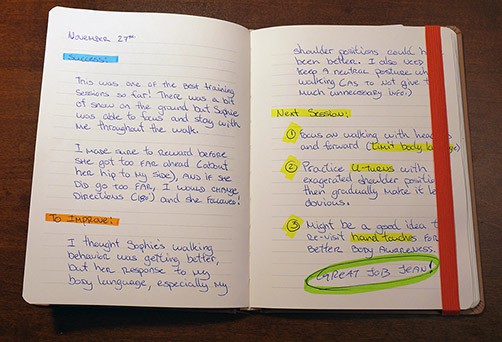 November 27th
Success:
This was one of the best training
sessions so far! There was a bit
of snow on the ground but Sophie
was able to focus and stay with
me throughout the walk.
I made sure to reward before
she got too far ahead (about
her hip to my side), and if she
did go too far, I would change
directions (180) and she followed!
To Improve:
I thought Sophie's walking
behavior was getting better,
but her response to my
body language, especially my
shoulder positions could
been better. I also need
keep a neutral posture
walking (as to not give
much unnecessary info!)
Next Session:
1 Focus on walking with
and forward (limit body
2 Practice U-turns with
exagerated shoulder
then gradually make it
obvious.
3 Might be a good idea
re-visit hand touches for
better body awareness.
Great Job Jean!